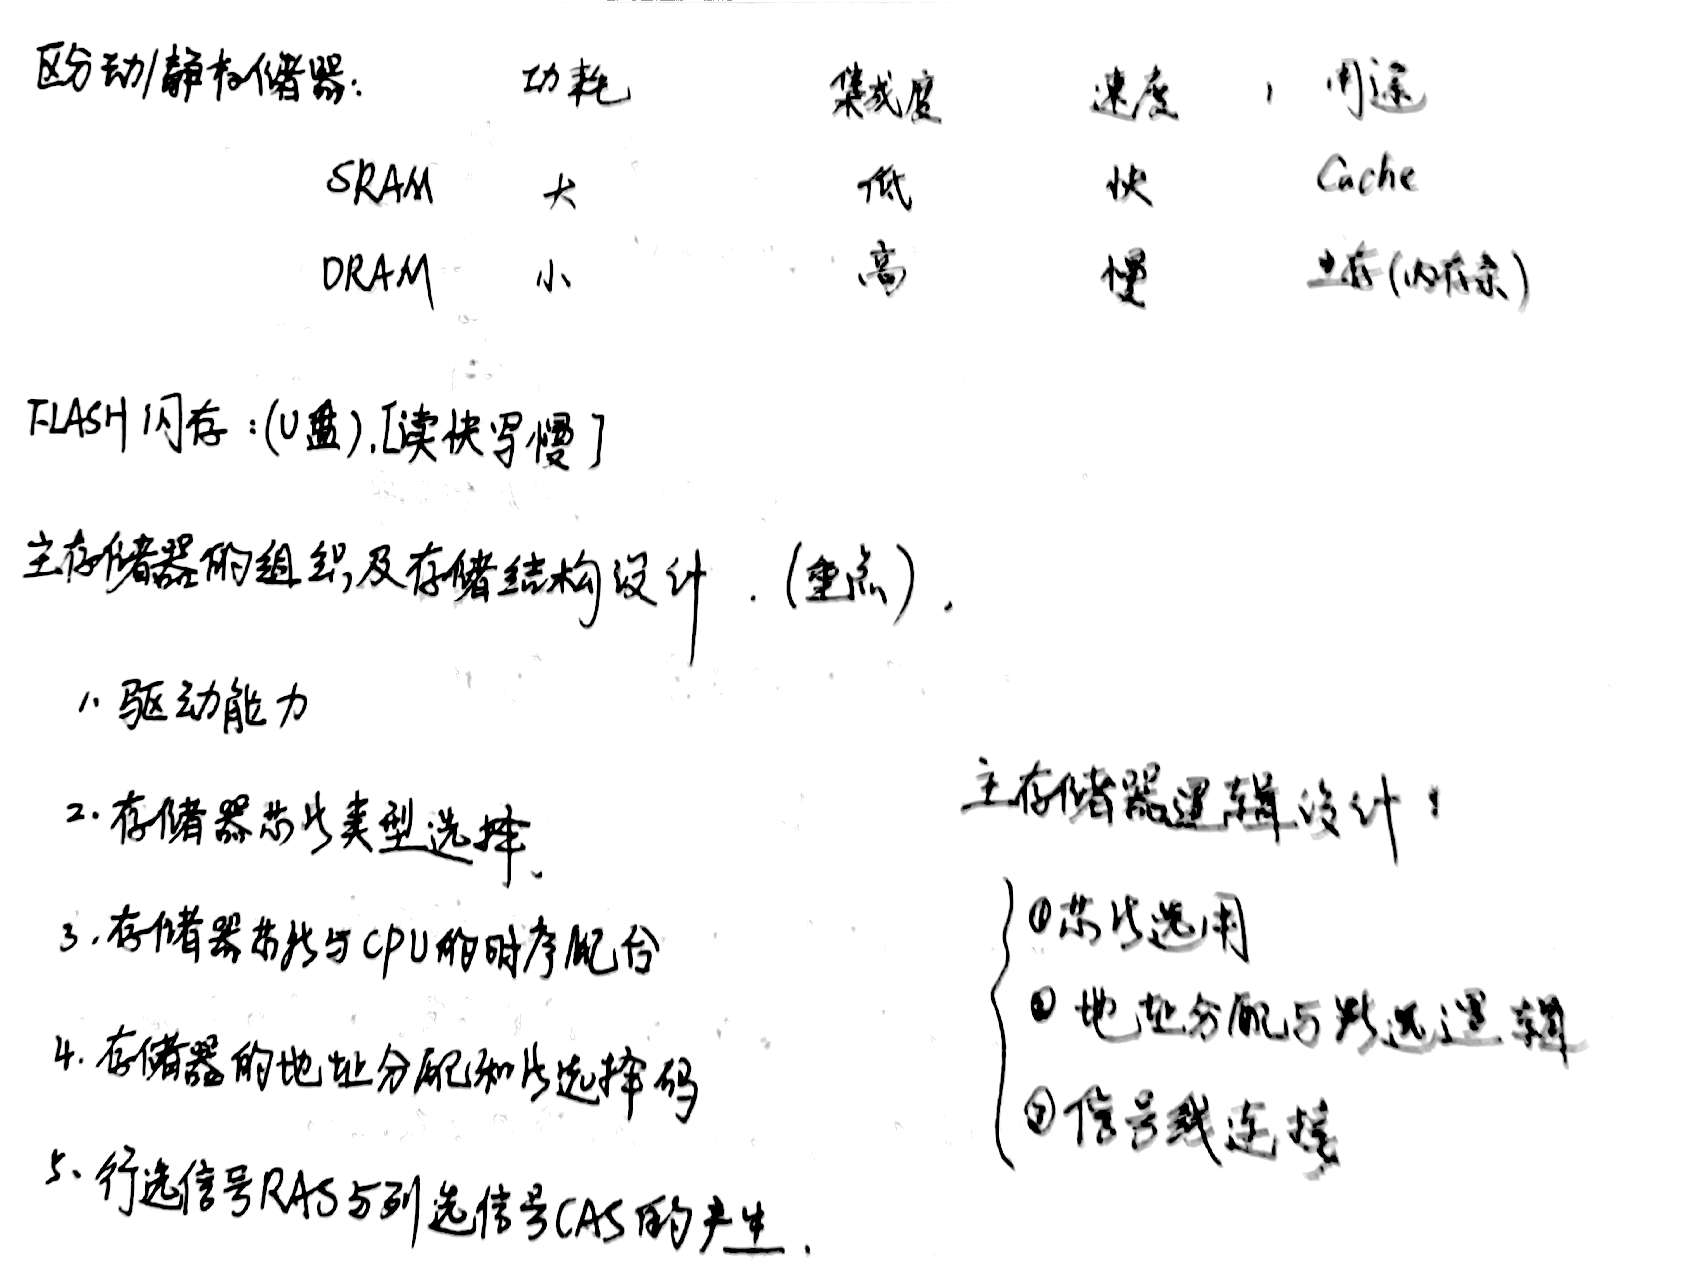 区分动/静存储器: 功耗 集成度 速度 , 用途
SRAM 大 低 快 Cache
DRAM 小 高 慢 主存(内存条)
FLASH闪存:(U盘).[读快写慢]
主存储器的组织及存储结构设计.(重点).
1. 驱动能力
2. 存储器芯片类型选择.
3. 存储器芯片与CPU的时序配合
4. 存储器的地址分配和片选择码
5、行选信号RAS与列选信号CAS的产生.
主存储器逻辑设计:
①芯片选用
②地址分配与片选逻辑
③信号线连接